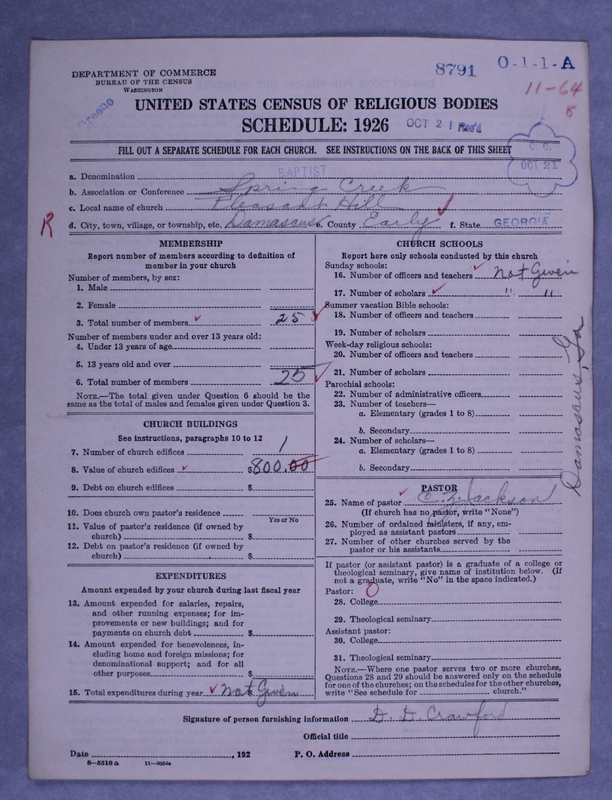 DEPARTMENT OF COMMERCE
BUREAU OF THE CENSUS
WASHINGTON
8791
O-1-1-A
11-64
8
Greene
UNITED STATES CENSUS OF RELIGIOUS BODIES
SCHEDULE: 1926
OCT 21 Rec'd
C. C.
OCT 21
FILL OUT A SEPARATE SCHEDULE FOR EACH CHURCH. SEE INSTRUCTIONS ON THE BACK OF THIS SHEET
a. Denomination BAPTIST
b. Association or Conference Spring Creek
c. Local name of church Pleasant Hill
R
d. City, town, village, or township, etc. Damascus e. County Early f. State GEORGIA
MEMBERSHIP
Report number of members according to definition of
member in your church
Number of members, by sex:
1. Male
2. Female
3. Total number of members 25
Number of members under and over 13 years old:
4. Under 13 years of age
5. 13 years old and over
6. Total number of members 25
NOTE.—The total given under Question 6 should be the
same as the total of males and females given under Question 3.
CHURCH BUILDINGS
See instructions, paragraphs 10 to 12
7. Number of church edifices 1
8. Value of church edifices $800.00
9. Debt on church edifices $
10. Does church own pastor's residence
Yes or No
11. Value of pastor's residence (if owned by
church) $
12. Debt on pastor's residence (if owned by
church) $
EXPENDITURES
Amount expended by your church during last fiscal year
13. Amount expended for salaries, repairs,
and other running expenses; for im-
provements or new buildings; and for
payments on church debt $
14. Amount expended for benevolences, in-
cluding home and foreign missions; for
denominational support; and for all
other purposes $
15. Total expenditures during year Not Given
CHURCH SCHOOLS
Report here only schools conducted by this church
Sunday schools:
16. Number of officers and teachers Not Given
17. Number of scholars " "
Summer vacation Bible schools:
18. Number of officers and teachers
19. Number of scholars
Week-day religious schools:
20. Number of officers and teachers
21. Number of scholars
Parochial schools:
22. Number of administrative officers
23. Number of teachers—
a. Elementary (grades 1 to 8)
b. Secondary
24. Number of scholars—
a. Elementary (grades 1 to 8)
b. Secondary
Damascus, Ga
PASTOR
25. Name of pastor C. Z. Jackson
(If church has no pastor, write "None")
26. Number of ordained ministers, if any, em-
ployed as assistant pastors
27. Number of other churches served by the
pastor or his assistants
If pastor (or assistant pastor) is a graduate of a college or
theological seminary, give name of institution below. (If
not a graduate, write "No" in the space indicated.)
Pastor: O
28. College
29. Theological seminary
Assistant pastor:
30. College
31. Theological seminary
NOTE.—Where one pastor serves two or more churches,
Questions 28 and 29 should be answered only on the schedule
for one of the churches; on the schedules for the other churches,
write "See schedule for church."
Signature of person furnishing information D. D. Crawford
Official title
Date , 192 P. O. Address
8—5518a 11—9034a